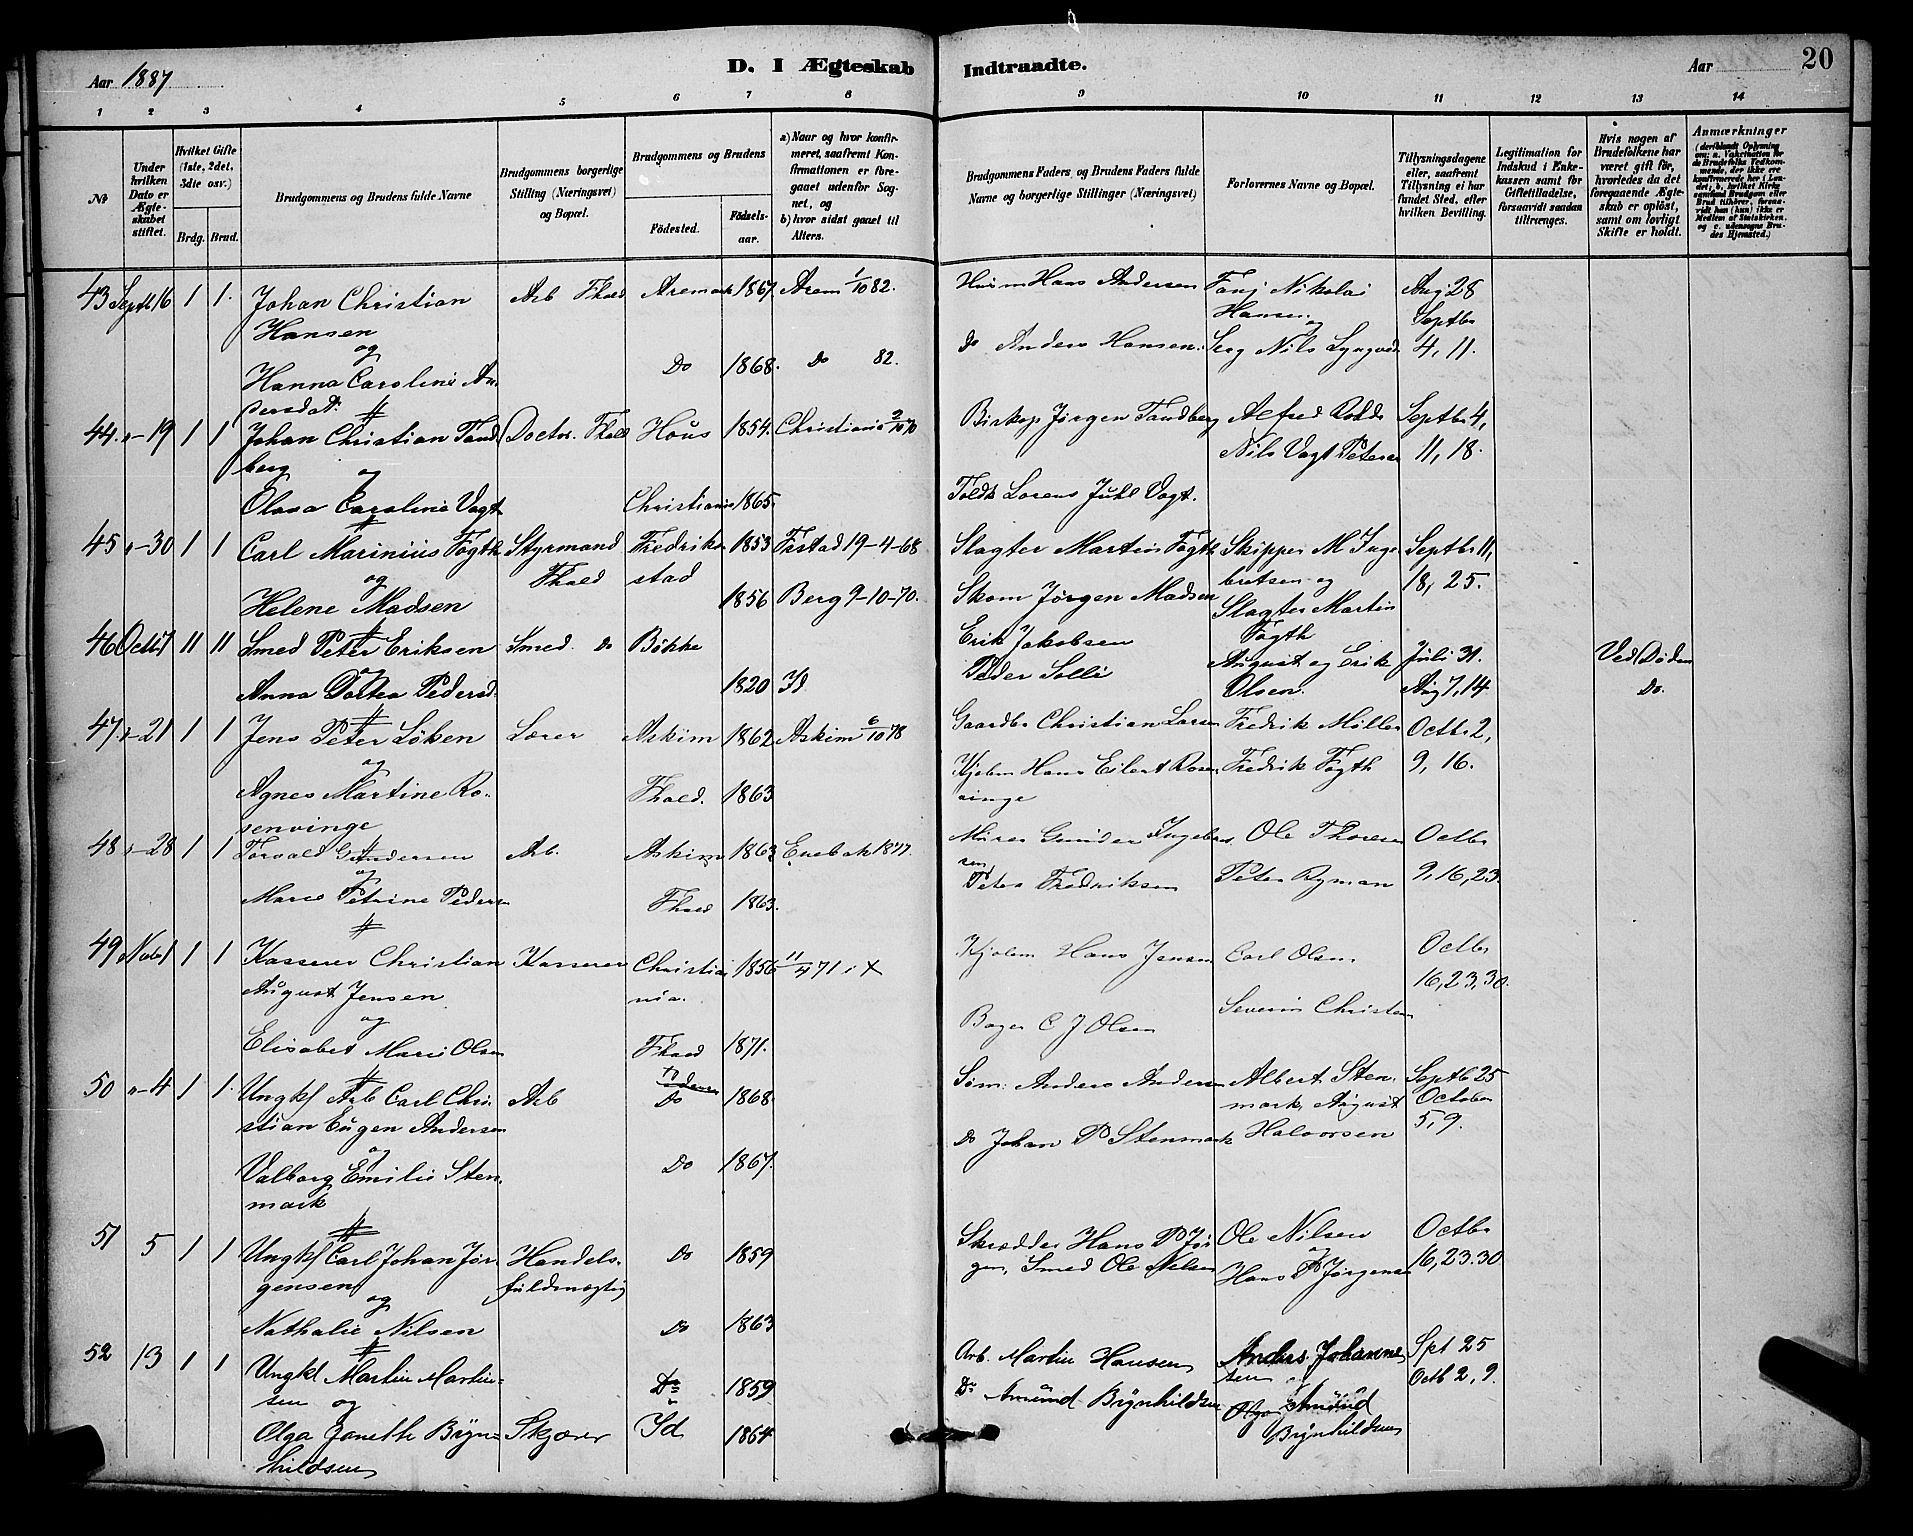 Aar 1887
D. I Ægteskab Indtraadte.
Aar
20
1 2 3 4 5 6 7 8 9 10 11 12 13 14
№
Under hvilken Dato er Ægteskabet stiftet.
Hvilket Gifte (1ste, 2det, 3die osv.)
Brdg. Brud.
Brudgommens og Brudens fulde Navne
Brudgommens borgerlige Stilling (Næringsvei) og Bopæl.
Brudgommens og Brudens
Fødested.
Fødselsaar.
a) Naar og hvor konfirmeret, saafremt Konfirmationen er foregaaet udenfor Sognet, og
b) hvor sidst gaaet til Alters.
Brudgommens Faders, og Brudens Faders fulde Navne og borgerlige Stillinger (Næringsvei)
Forlovernes Navne og Bopæl.
Tillysningsdagene eller, saafremt Tillysning ei har fundet Sted, efter hvilken Bevilling.
Legitimation for Indskud i Enkekassen samt for Giftetilladelse, forsaavidt saadan tiltrænges.
Hvis nogen af Brudefolkene har været gift før, hvorledes da det foregaaende Ægteskab er opløst, samt om lovligt Skifte er holdt.
Anmærkninger
(deriblandt Oplysning om: a. Vakcination for de Brudefolks Vedkommende, der ikke ere konfirmerede her i Landet; b. hvilket Kirkesamfund Brudgom eller Brud tilhører, forsaavidt han (hun) ikke er Medlem af Statskirken, og c. udensogns Brudes Hjemsted.)
43 Septbr 16 1 1. Johan Christian Hansen
og
Hanna Caroline Andersdtr.
Arb Fhald
Aremark 1867. Arem 1/10 82.
Do 1868. Do 82.
Husm Hans Andersen
Do Anders Hansen.
Nikolai Hansen og
Nils
Aug 28
Septbr
4, 11.
44. "-19 1 1 Johan Christian Tandberg
og
Olava Caroline Vogt
Doctor. Fhald
Hous 1854. Christiania 2/10 70
Christiania 1865.
Biskop Jørgen Tandberg
Lorens Juhl Vogt.
Alfred
Nils Vogt Petersen
Septbr 4,
11, 18.
45 "-30 1 1 Carl Marinius Fogth
og
Helene Madsen
Styrmand
Fhald
Fredrikstad 1853 Fstad 19-4-68
1856 Berg 9-10-70.
Slagter Martin Fogth
Skom Jørgen Madsen
Skipper M Ingebretsen og
Slagter Martin Fogth
Septbr 11,
18, 25.
46 Octbr 1 11 11 Smed Peter Eriksen
og
Anna Dortea Pedersd.
Smed. Do
Bakke
1820 Id
Erik Jakobsen
Peder Solli
August og Erik
Olsen.
Juli 31.
Aug 7, 14
Ved Døden
Do.
47 "-21 1 1 Jens Peter Løken
og
Agnes Martine Rosenvinge
Lærer
Askim 1862 Askim 6/10 78
Fhald. 1863
Gaardbr Christian Larsen
Kjøbm Hans Eilert Rosenvinge
Fredrik Møller
Fredrik Fogth
Octbr 2,
9, 16.
48 "-28 1 1 Torvald Gundersen
og
Marie Petrine Pedersen
Arb.
Askim 1863 Enebak 1877.
Fhald 1863.
Murer Gunder Ingebretsen
Peter Fredriksen
Ole Thoresen
Peter Ryman
Octbr
9, 16, 23.
49 Novbr 1 1 1 Kasserer Christian
August Jensen
og
Elisabet Marie Olsen
Kasserer
Christiania. 1856 11/4 71 i X
Fhald 1871.
Kjøbm Hans Jensen
Bager C J Olsen
Carl Olsen.
Severin Christen
Octbr
16, 23, 30.
50 "-4 1 1. Ungkl Arb Carl Christian Eugen Andersen
og
Valborg Emilie Stenmark
Arb
Do 1868.
Do 1867.
Søm. Anders Andersen
Do Johan P Stenmark
Albert Stenmark, August
Halvorsen
Septb 25
October
5, 9.
51 5 1 1 Ungkl Carl Johan Jørgensen
og
Nathalie Nilsen
Handelsfuldmægtig
Do 1859
Do 1863
Skrædder Hans P Jørgen, Smed Ole Nilsen
Ole Nilsen
og
Hans P Jørgensen
Octbr
16, 23. 30
52 13 1 1 Ungkl Martin Martinsen og
Olga Janette Brynhildsen
Skjærer
Do 1859
Id 1864
Arb. Martin Hansen
Do Amund Brynhildsen
Anders Johannesen og
Amund
Brynhildsen
Spt 25
Octb 2, 9.